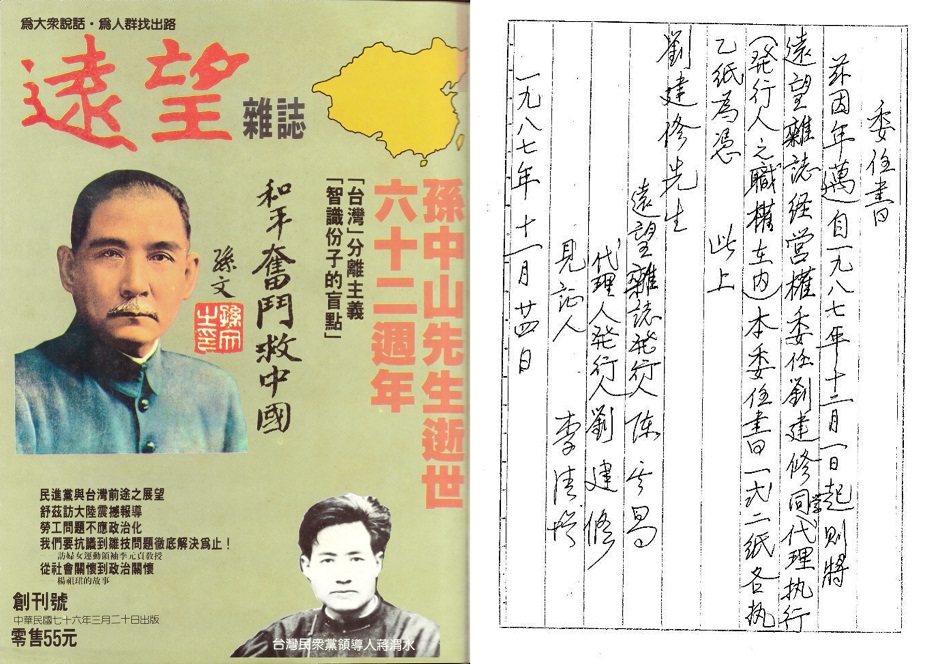 為大衆說話・為人群找出路
遠望
雜誌
孫中山先生逝世
六十二週年
「台灣」分離主義
「智識份子的盲點」
和平奮鬥救中國
孫文
孫文
之印
民進黨與台灣前途之展望
舒茲訪大陸震撼報導
勞工問題不應政治化
我們要抗議到雛妓問題徹底解決為止！
訪婦女運動領袖李元貞教授
從社會關懷到政治關懷
楊祖珺的故事
創刊號
中華民國七十六年三月二十日出版
零售55元
台灣民衆黨領導人蔣渭水
委任書
茲因年萬自一九八七年十二月一日起則將
遠望雜誌经营權委任劉建修同營代理执行
(發行人之職權在内)本委任書一式二紙各执
乙紙為憑 此上
劉建修先生
遠望雜誌发行人 陈
代理人発行人 劉建修
見証人 李清
一九八七年十一月廿四日